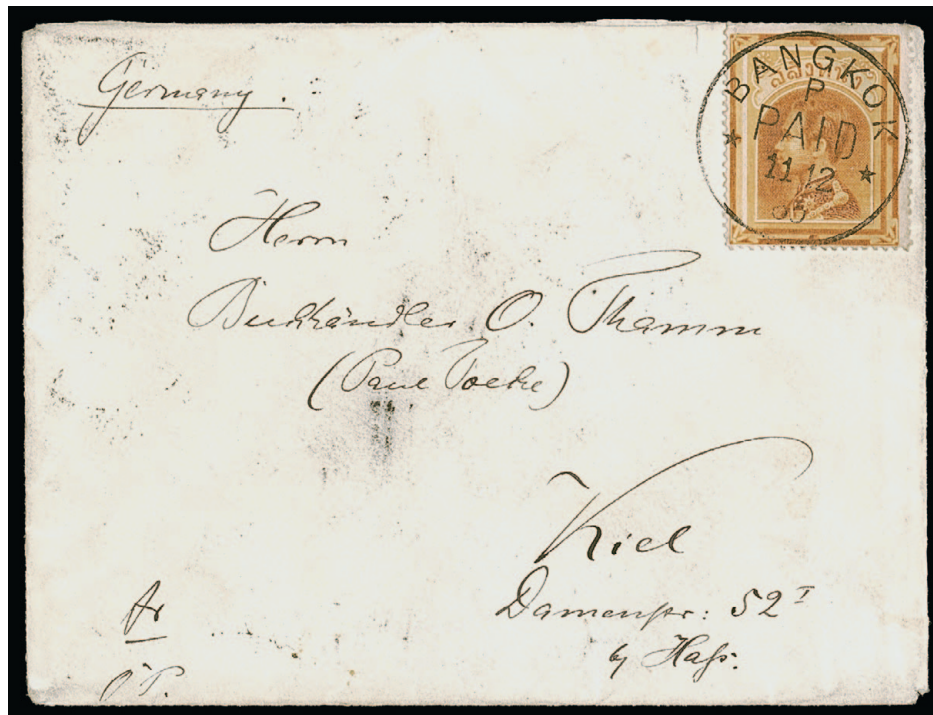 Germany.
BANGKOK
P
PAID
11 12
85
Herrn
Buchhändler O. Thamm
(Paul Toeche)
Kiel
Damenstr: 52 I
by Hass.
fr